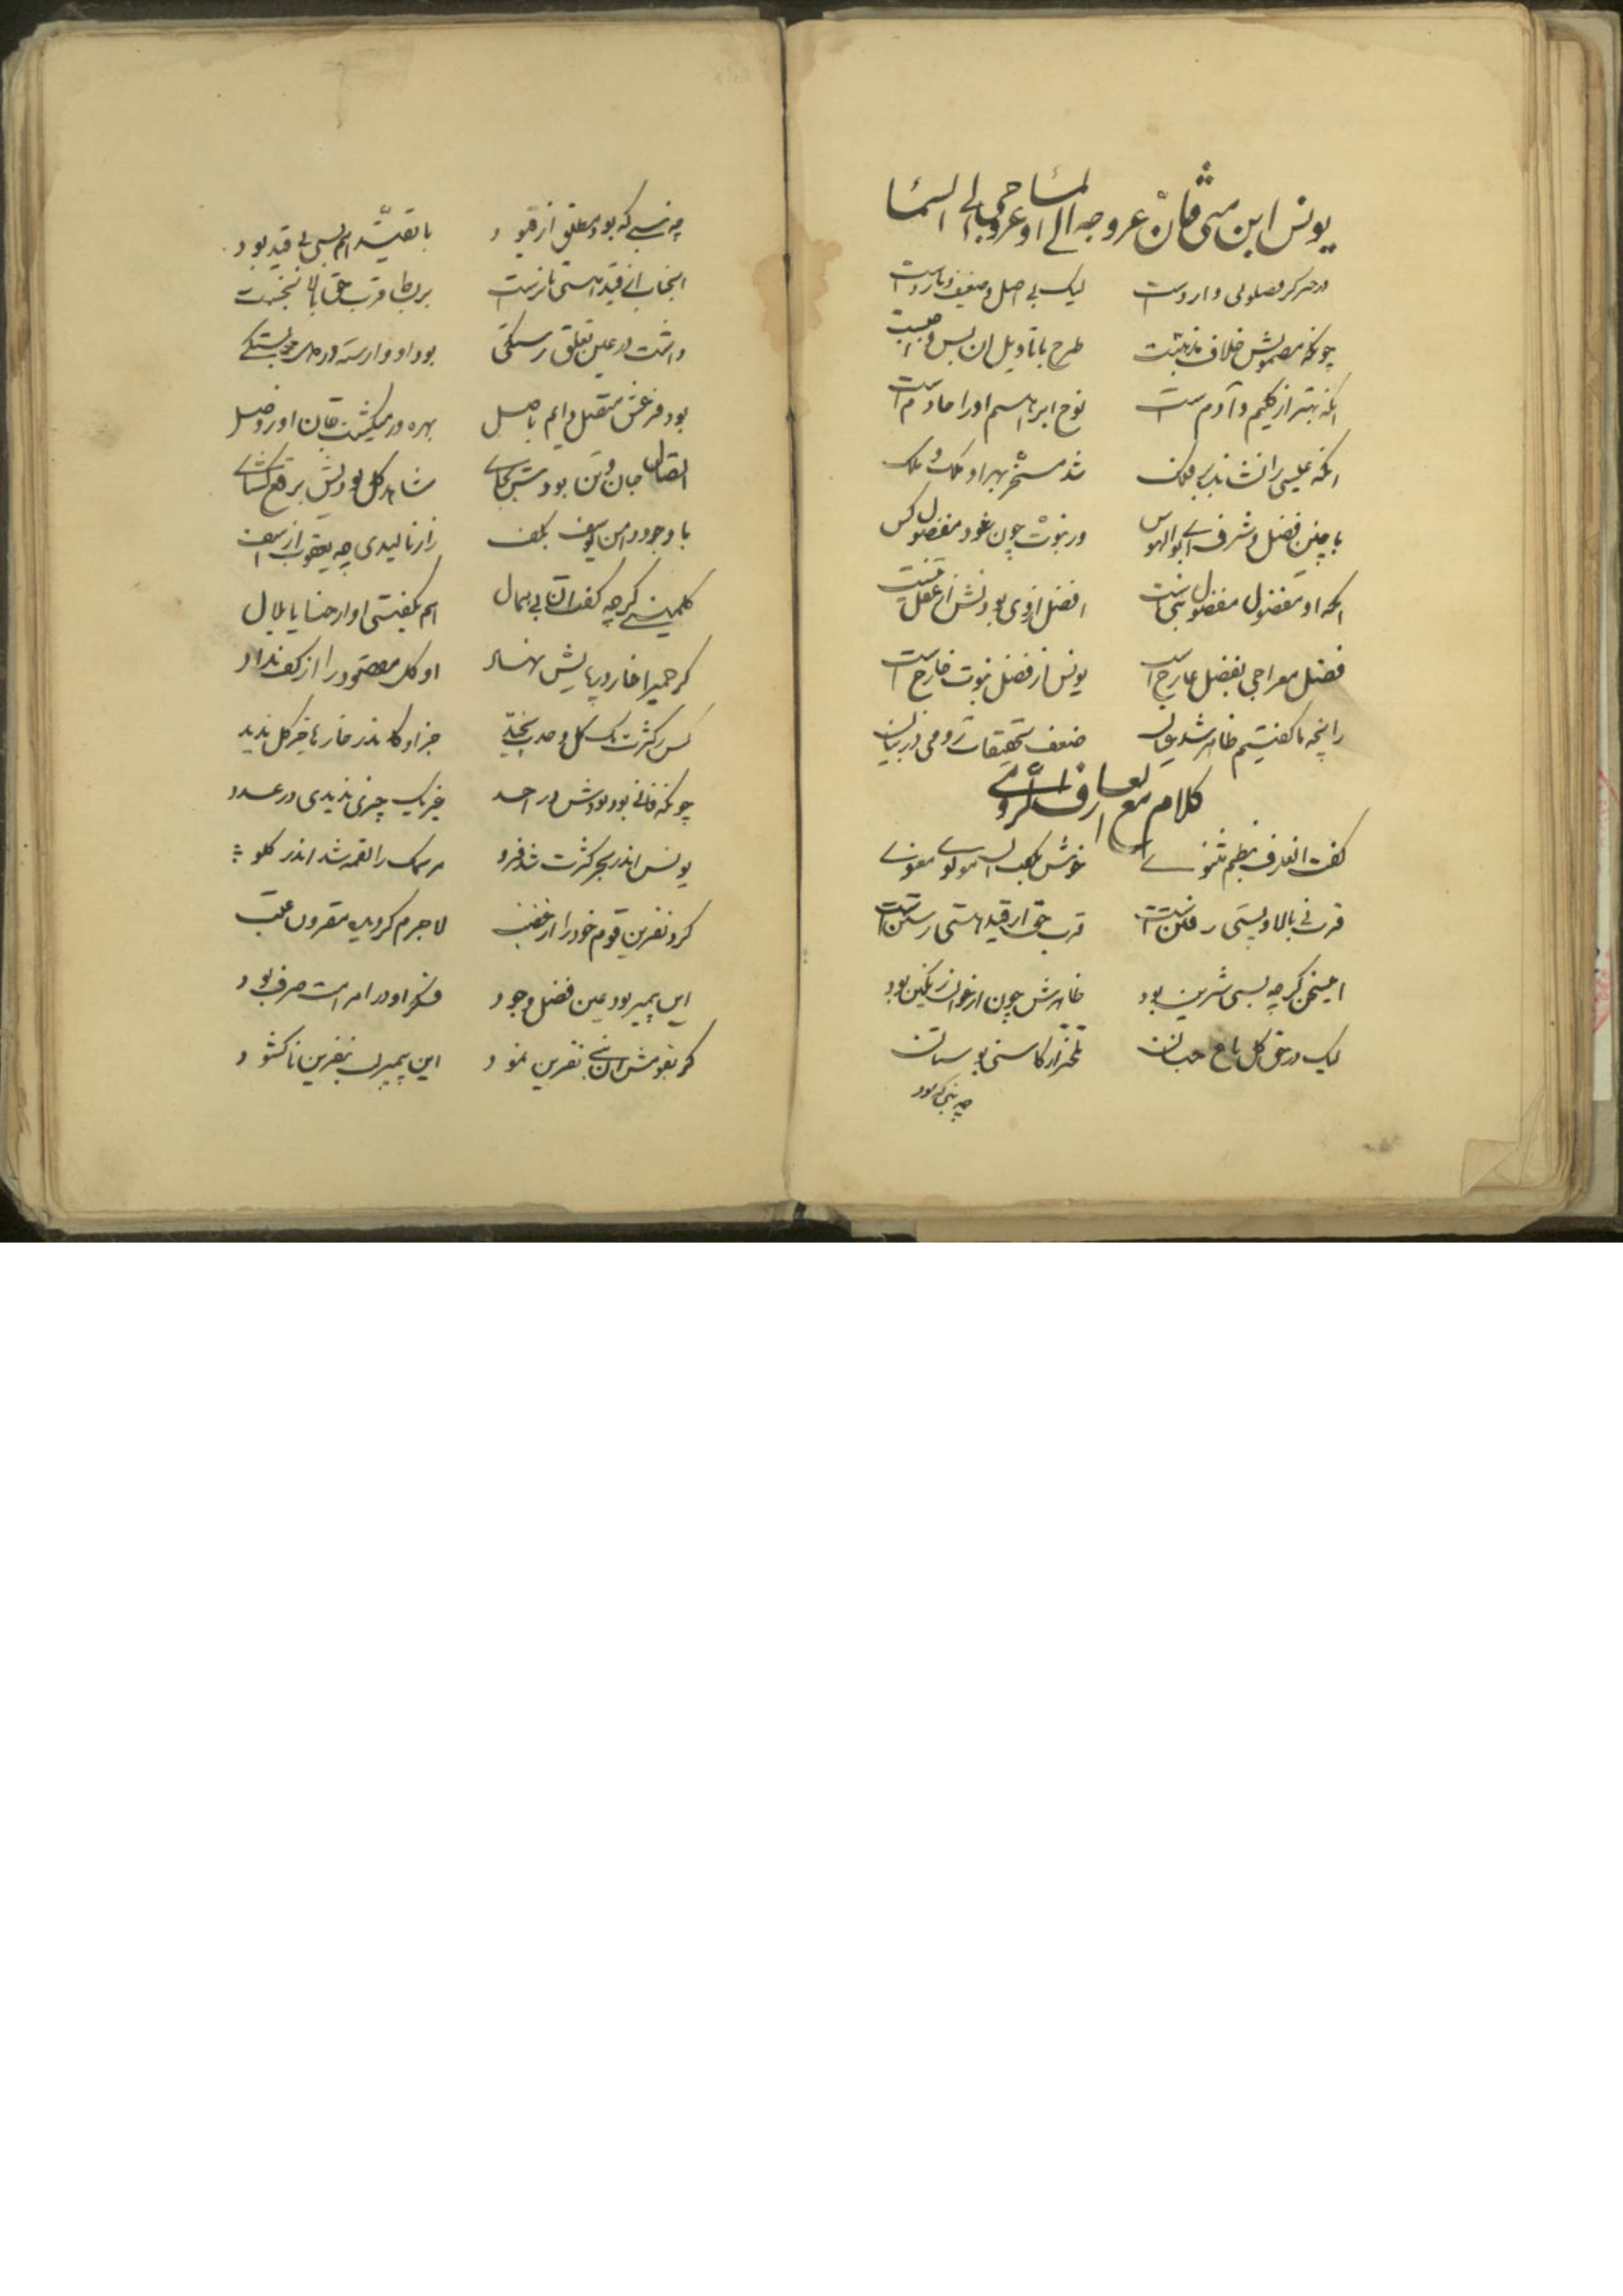 یونس ابن متی فان عروجه الی الماء و عروجی الی السماء
در خبر کر وارد است لیک بی اصل و ضعیف و نارواست
چونکه مضمونش خلاف مذهبست طرح یا تأویل ان پس واجبست
آنکه بهتر از کلیم و آدم ست نوح ابراهیم او را خادم است
آنکه عیسی را نشاند بر فلک شد مسخر بهر او ملک و ملک
با چنین فضل و شرف ای بوالهوس در نبوت چون غود مفضول کس
آنکه او مفضول مفضول نبی است افضل از وی بودنش از عقل نیست
فضل معراجی بفضل خارج است یونس از فضل نبوت خارج است
زانچه ما گفتیم ظاهر شد ضعف تحقیقات رومی در بیان
کلام مع العارف الرومی
گفت انعارف بنظم مثنوی خوش مولوی معنوی
قرب نی بالا و پستی رفتن است قرب حق از قید هستی رستن است
اینسخن کرچه بسی شیرین بود ظاهرش چون ارغوان رنکین بود
لیک در حق کل باغ جنان تلختر از کاسنی بوستان
چه نبی که بود
چه نبی که بود مطلق از قیود با تقید هم بسی بی قید بود
انجناب از قید هستی باز رست بر بط قرب حق بالا نجست
داشت در عین تعلق رستکی بود او وارسته در بستکی
بود فرعش متصل دایم باصل بهره ور میکشت جان او ز وصل
اتصال جان و تن بودش بجای شاهد کل بودیش برقع کشای
با وجود دامن یوسف بکف زار نالیدی چه یعقوب از اسف
کلمینی کرچه کفت آن بی همال هم بکفتی او ارحنا یا بلال
کر حمیرا خار در پایش نهاد او کل مقصود را از کف نداد
پس ز کثرت یک کل وحدت بچید جز او کاندر خار ها جز کل ندید
چونکه فانی بود بودش در احد غیر یک چیزی ندیدی در عدد
یونس اندر بحر کثرت شد فرو مر سمک را لقمه شد اندر کلو
کرد نفرین قوم خود را از غضب لاجرم کردید مقرون عتب
این پیمبر بود عین فضل وجود فکر او در امر امت صرف بود
کر بقومش ان نبی نفرین نمود این پیمبر لب بنفرین ناکشود